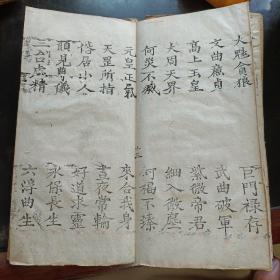 大魁貪狼 巨門祿存
文曲廉貞 武曲破軍
高上玉皇 紫微帝君
大周天界 細入微塵
何災不滅 何福不臻
元皇正氣 來合我身
天罡所指 晝夜常輪
俗居小人 好道求靈
願見尊儀 永保長生
三台虛精 六淳曲生